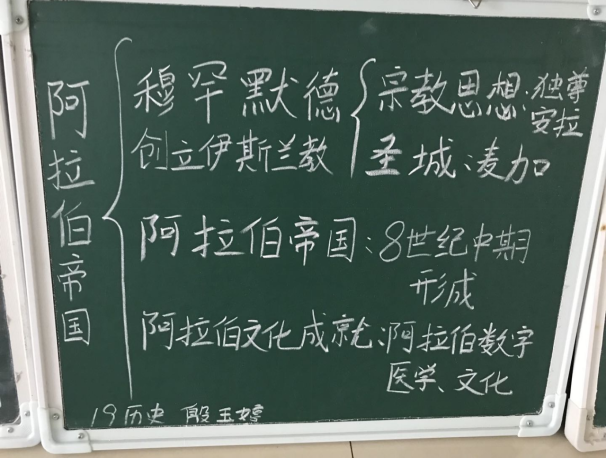 阿拉伯帝国
穆罕默德
创立伊斯兰教
宗教思想:独尊
安拉
圣城:麦加
阿拉伯帝国:8世纪中期
形成
阿拉伯文化成就:阿拉伯数字
医学、文化
19历史 殷玉婷